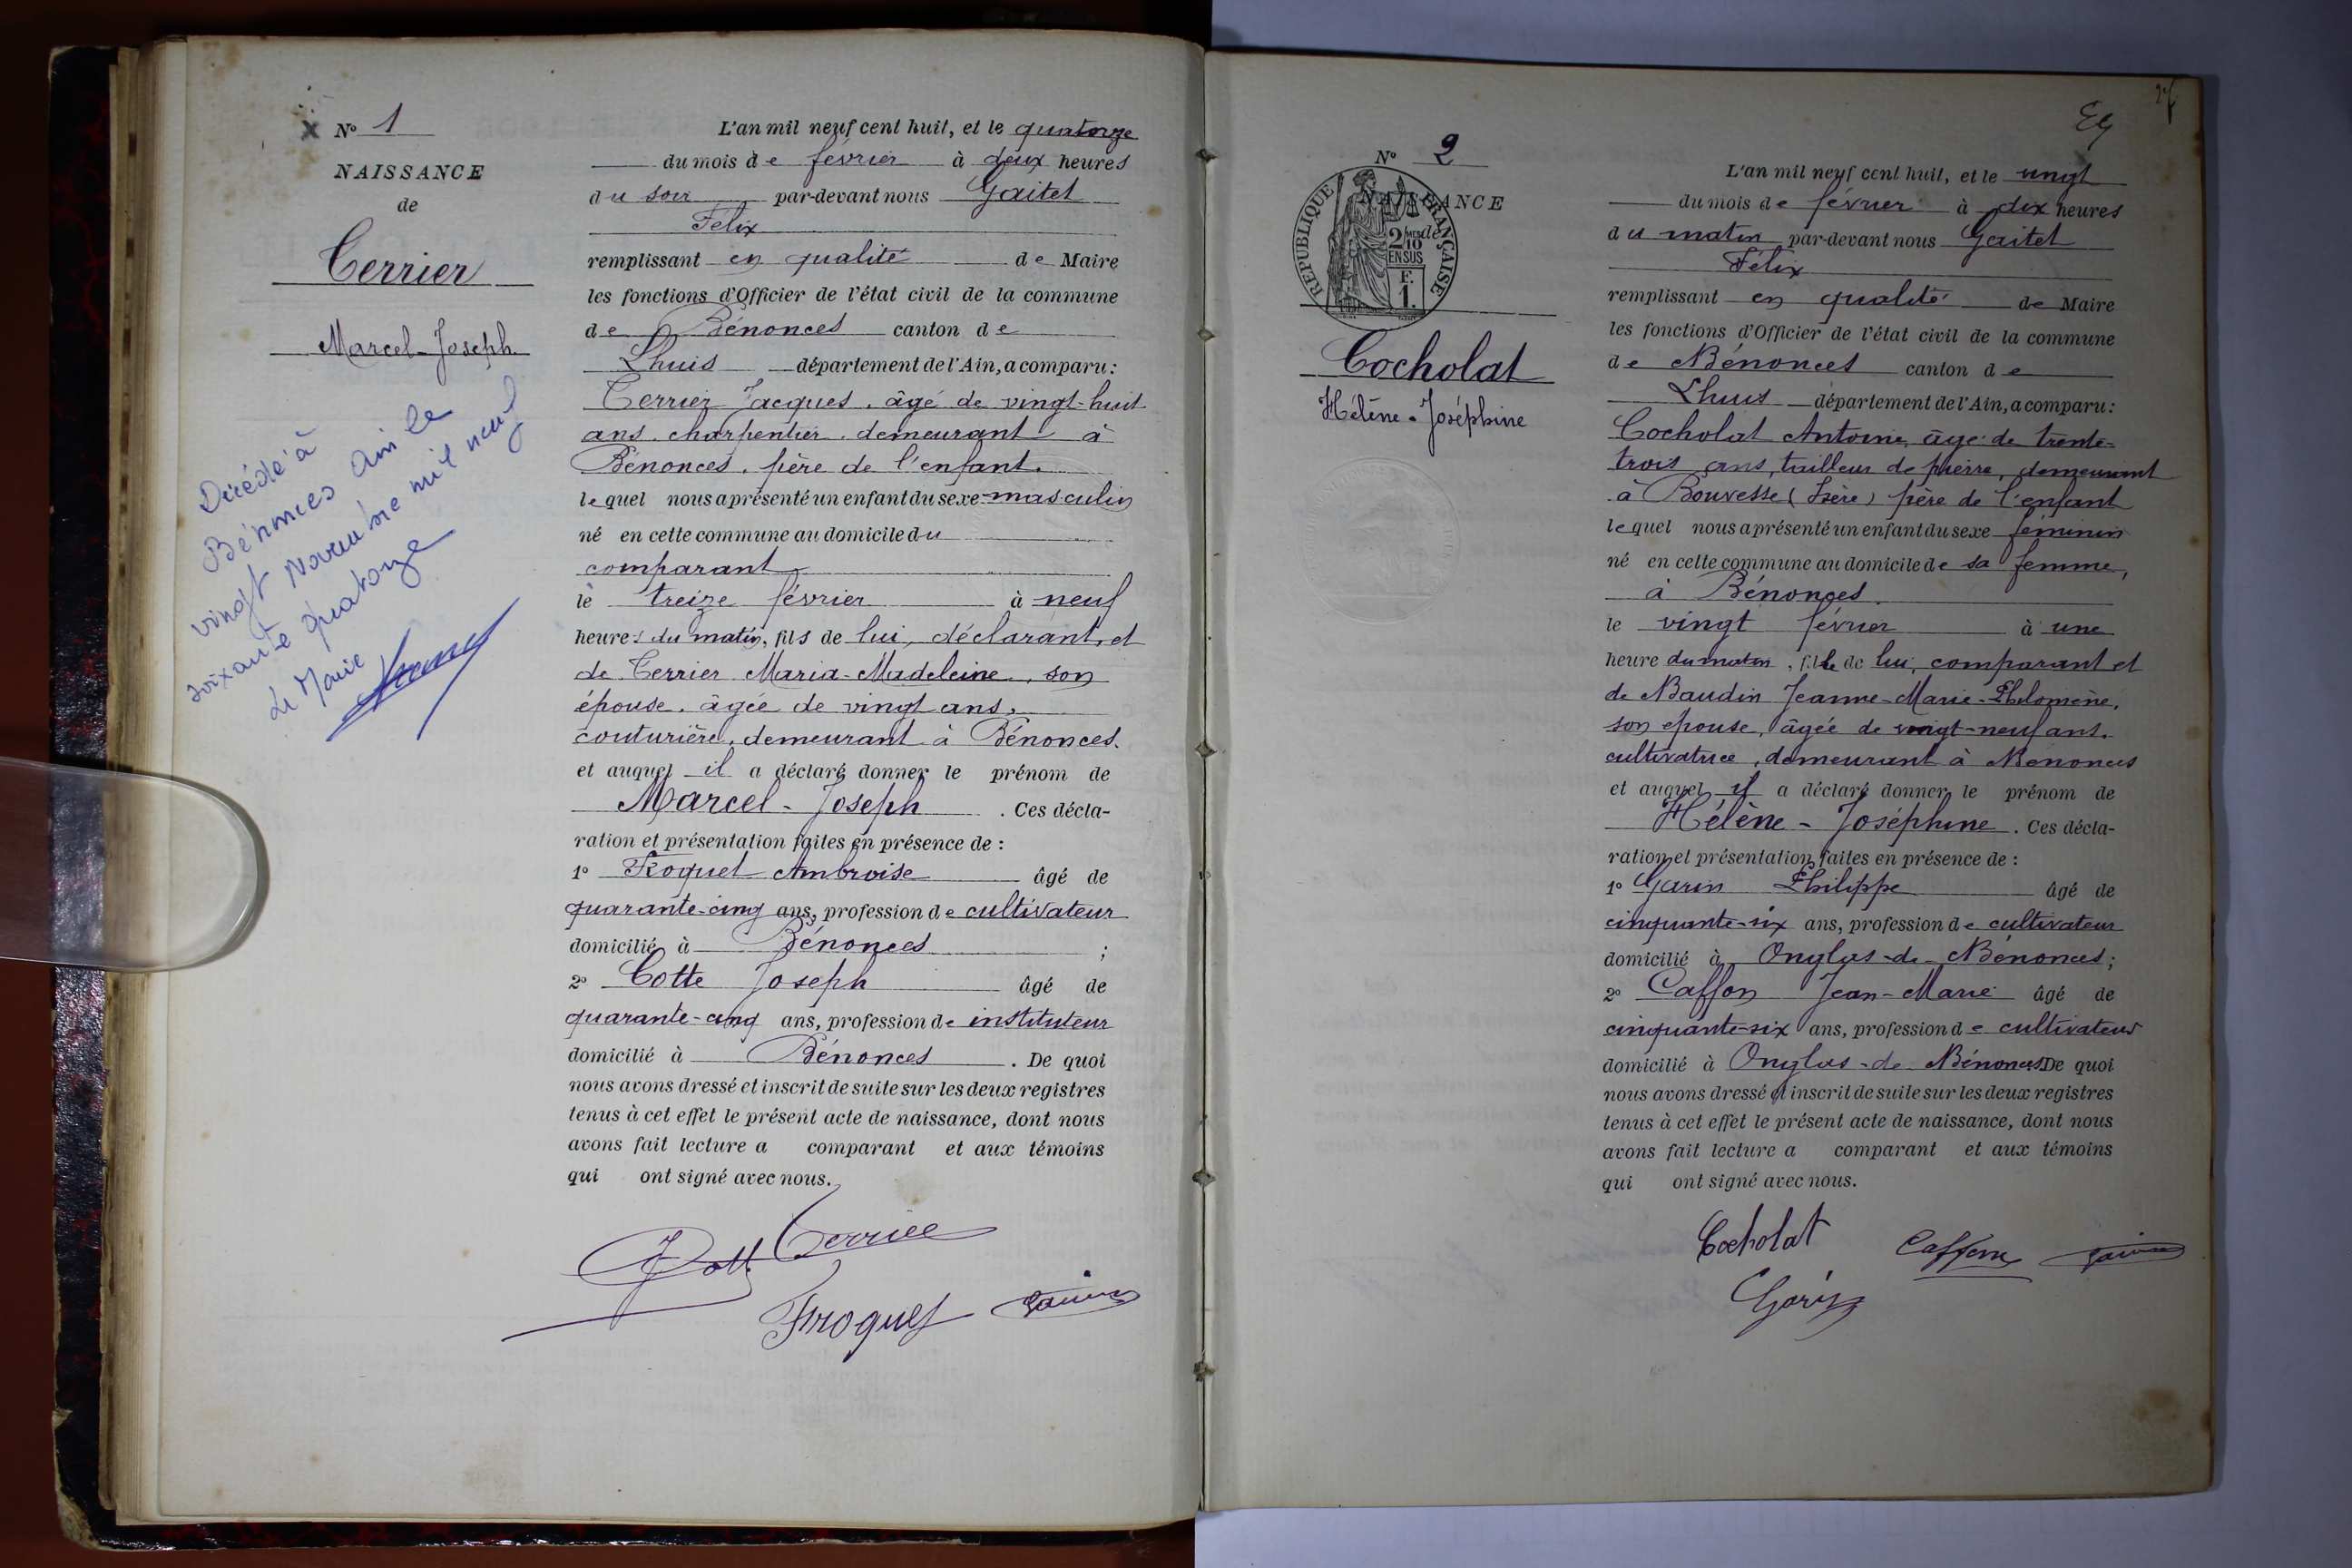 N° 1
NAISSANCE
de
Terrier
Marcel-Joseph.
Décédé à
Bénonces Ain le
vingt Novembre mil neuf
soixante quatorze
Le Maire
L'an mil neuf cent huit, et le quatorze
du mois de février à deux heures
du soir par-devant nous Gaitet
Félix
remplissant en qualité de Maire
les fonctions d'Officier de l'état civil de la commune
de Bénonces canton de
Lhuis département de l'Ain, a comparu:
Terrier Jacques, âgé de vingt-huit
ans, charpentier, demeurant à
Bénonces, père de l'enfant.
lequel nous a présenté un enfant du sexe masculin
né en cette commune au domicile du
comparant
le treize février à neuf
heures du matin, fils de lui, déclarant, et
de Terrier Maria-Madeleine, son
épouse, âgée de vingt ans,
couturière, demeurant à Bénonces.
et auquel il a déclaré donner le prénom de
Marcel-Joseph. Ces décla-
ration et présentation faites en présence de :
1° Froquet Ambroise âgé de
quarante-cinq ans, profession de cultivateur
domicilié à Bénonces ;
2° Cotte Joseph âgé de
quarante-cinq ans, profession de instituteur
domicilié à Bénonces. De quoi
nous avons dressé et inscrit de suite sur les deux registres
tenus à cet effet le présent acte de naissance, dont nous
avons fait lecture a comparant et aux témoins
qui ont signé avec nous.
J Cotte Terrier
Froquet Gaitet
27
N° 2
NAISSANCE
de
RÉPUBLIQUE FRANÇAISE
2/10 EN SUS
F.
1.
Cocholat
Hélène-Joséphine
L'an mil neuf cent huit, et le vingt
du mois de février à dix heures
du matin par-devant nous Gaitet
Félix
remplissant en qualité de Maire
les fonctions d'Officier de l'état civil de la commune
de Bénonces canton de
Lhuis département de l'Ain, a comparu:
Cocholat Antoine, âgé de trente-
trois ans, tailleur de pierre, demeurant
à Bouvesse (Isère) père de l'enfant
lequel nous a présenté un enfant du sexe féminin
né en cette commune au domicile de sa femme,
à Bénonces.
le vingt février à une
heure du matin, fille de lui, comparant et
de Baudin Jeanne-Marie-Philomène,
son épouse, âgée de vingt-neuf ans.
cultivatrice, demeurant à Bénonces
et auquel il a déclaré donner le prénom de
Hélène-Joséphine. Ces décla-
ration et présentation faites en présence de :
1° Garin Philippe âgé de
cinquante-six ans, profession de cultivateur
domicilié à Onglas-de-Bénonces;
2° Caffon Jean-Marie âgé de
cinquante-six ans, profession de cultivateur
domicilié à Onglas-de-Bénonces De quoi
nous avons dressé et inscrit de suite sur les deux registres
tenus à cet effet le présent acte de naissance, dont nous
avons fait lecture a comparant et aux témoins
qui ont signé avec nous.
Cocholat Caffon Gaitet
Garin